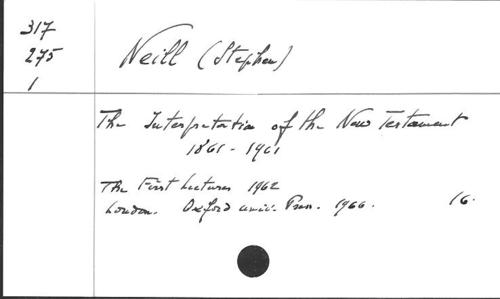 317
275
1
Neill (Stephen)
The Interpretation of the New Testament
1861-1961
The Firth Lectures 1962
London. Oxford univ. Press. 1966. 16.